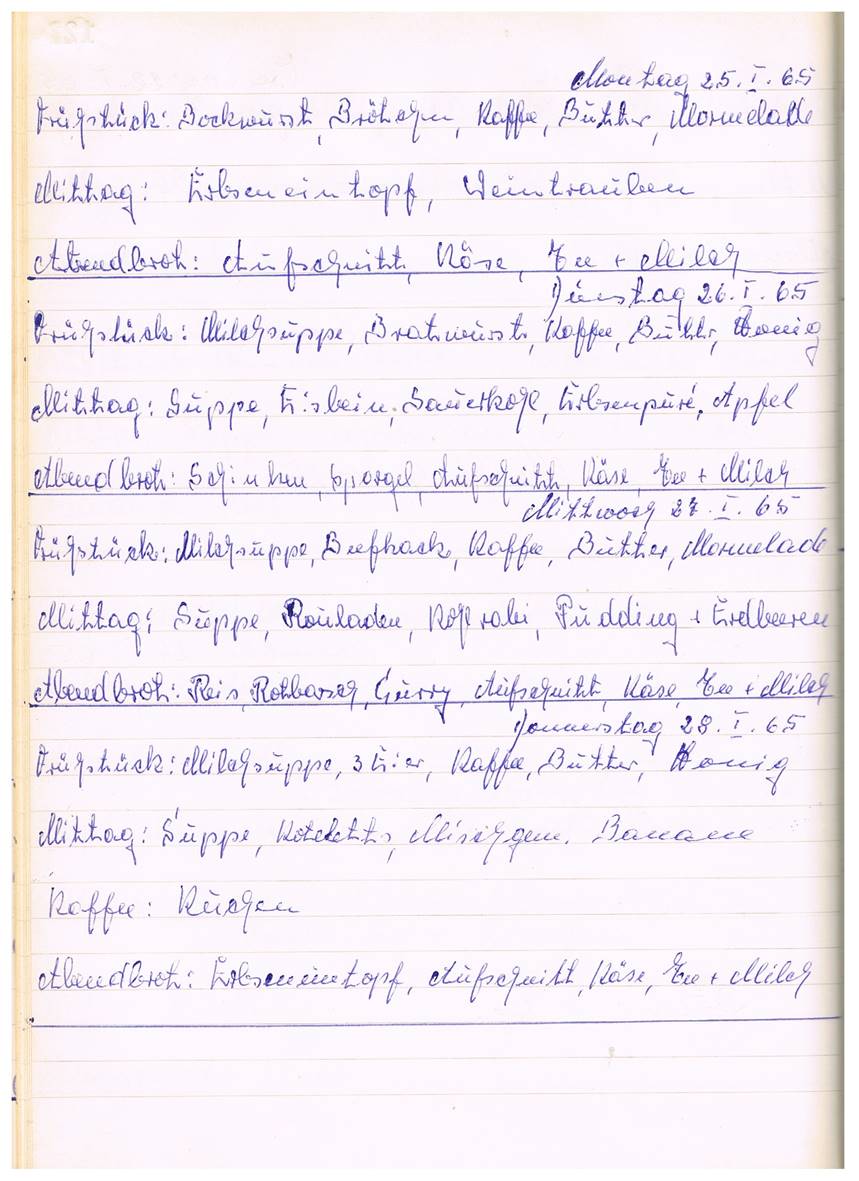 Montag 25. I. 65
Frühstück: Bockwurst, Brötchen, Kaffee, Butter, Marmelade
Mittag: Erbseneintopf, Weintrauben
Abendbrot: Aufschnitt, Käse, Tee + Milch
Dienstag 26. I. 65
Frühstück: Milchsuppe, Bratwurst, Kaffee, Butter, Honig
Mittag: Suppe, Eisbein, Sauerkohl, Erbsenpuré, Apfel
Abendbrot: Schinken, Spargel, Aufschnitt, Käse, Tee + Milch
Mittwoch 27. I. 65
Frühstück: Milchsuppe, Beefhack, Kaffee, Butter, Marmelade
Mittag: Suppe, Rouladen, Kohlrabi, Pudding + Erdbeeren
Abendbrot: Reis, Rotbarsch, Curry, Aufschnitt, Käse, Tee + Milch
Donnerstag 28. I. 65
Frühstück: Milchsuppe, 3 Eier, Kaffee, Butter, Honig
Mittag: Suppe, Koteletts, Mischgem. Banane
Kaffee: Kuchen
Abendbrot: Erbseneintopf, Aufschnitt, Käse, Tee + Milch